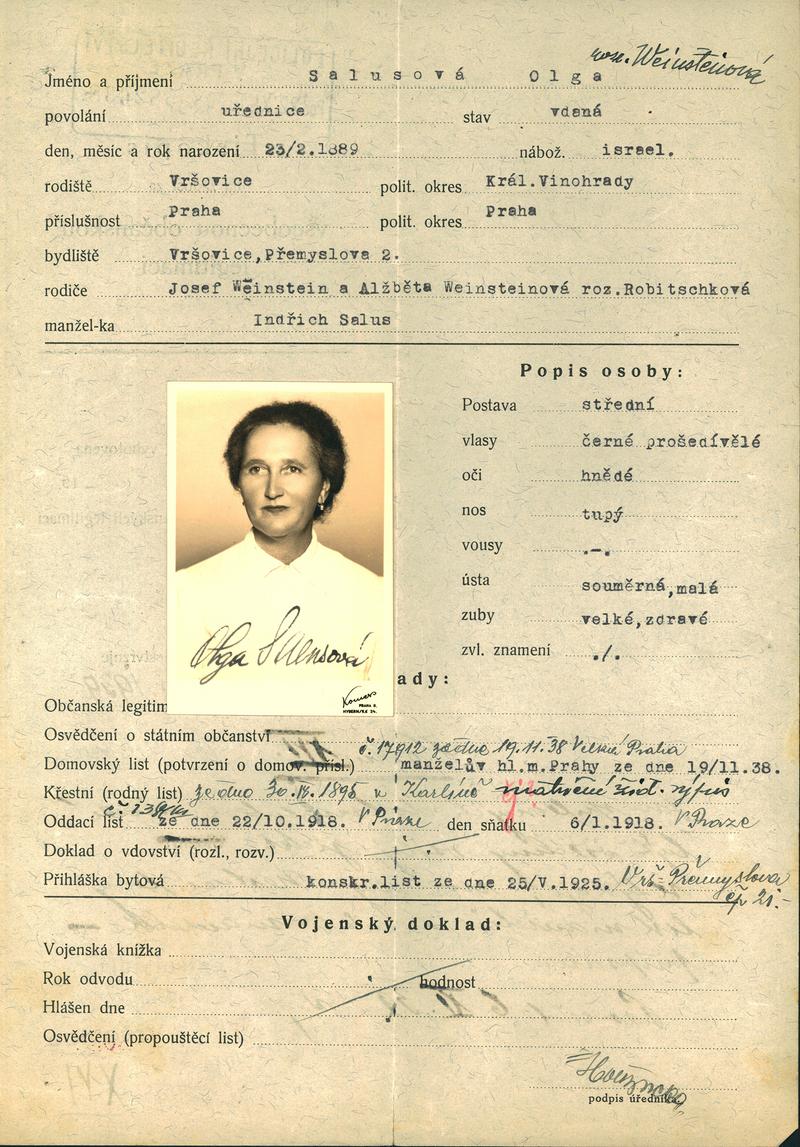 roz. Weinsteinová
Jméno a příjmení Salusová Olga
povolání uřednice stav vdaná
den, měsíc a rok narození 23/2.1889 nábož. israel.
rodiště Vršovice polit. okres Král.Vinohrady
příslušnost Praha polit. okres Praha
bydliště Vršovice,Přemyslova 2.
rodiče Josef Weinstein a Alžběta Weinsteinová roz.Robitschková
manžel-ka Indřich Salus
Popis osoby:
Postava střední
vlasy černé prošedívělé
oči hnědé
nos tupý
vousy .-.
ústa souměrná,malá
zuby velké,zdravé
zvl. znamení ./.
Olga Salusová
ady:
Občanská legitim
Osvědčení o státním občanství č. 17912 ze dne 19.11.38 Velká Praha
Domovský list (potvrzení o domov. přísl.) manželův hl.m.Prahy ze dne 19/11.38.
Křestní (rodný list) ze dne v Karlíně matriční žid.
Oddací list ze dne 22/10.1918. V Praze den sňatku 6/1.1918. V Praze
Doklad o vdovství (rozl., rozv.)
Přihláška bytová konskr.list ze dne 25/V.1925. Vrš- Přemyslova
čp 21.-
Vojenský doklad:
Vojenská knížka
Rok odvodu hodnost
Hlášen dne
Osvědčení (propouštěcí list)
podpis úředníka.